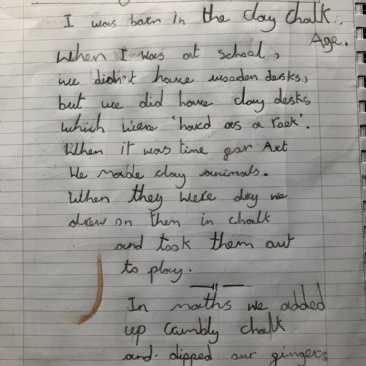 I was born in the clay chalk
Age.
When I was at school,
we didn't have wooden desks,
but we did have clay desks
which were 'hard as a rock'.
When it was time for Art
We made clay animals.
When they were dry we
drew on them in chalk
and took them out
to play.
In maths we added
up Crumbly chalk
and dipped our fingers